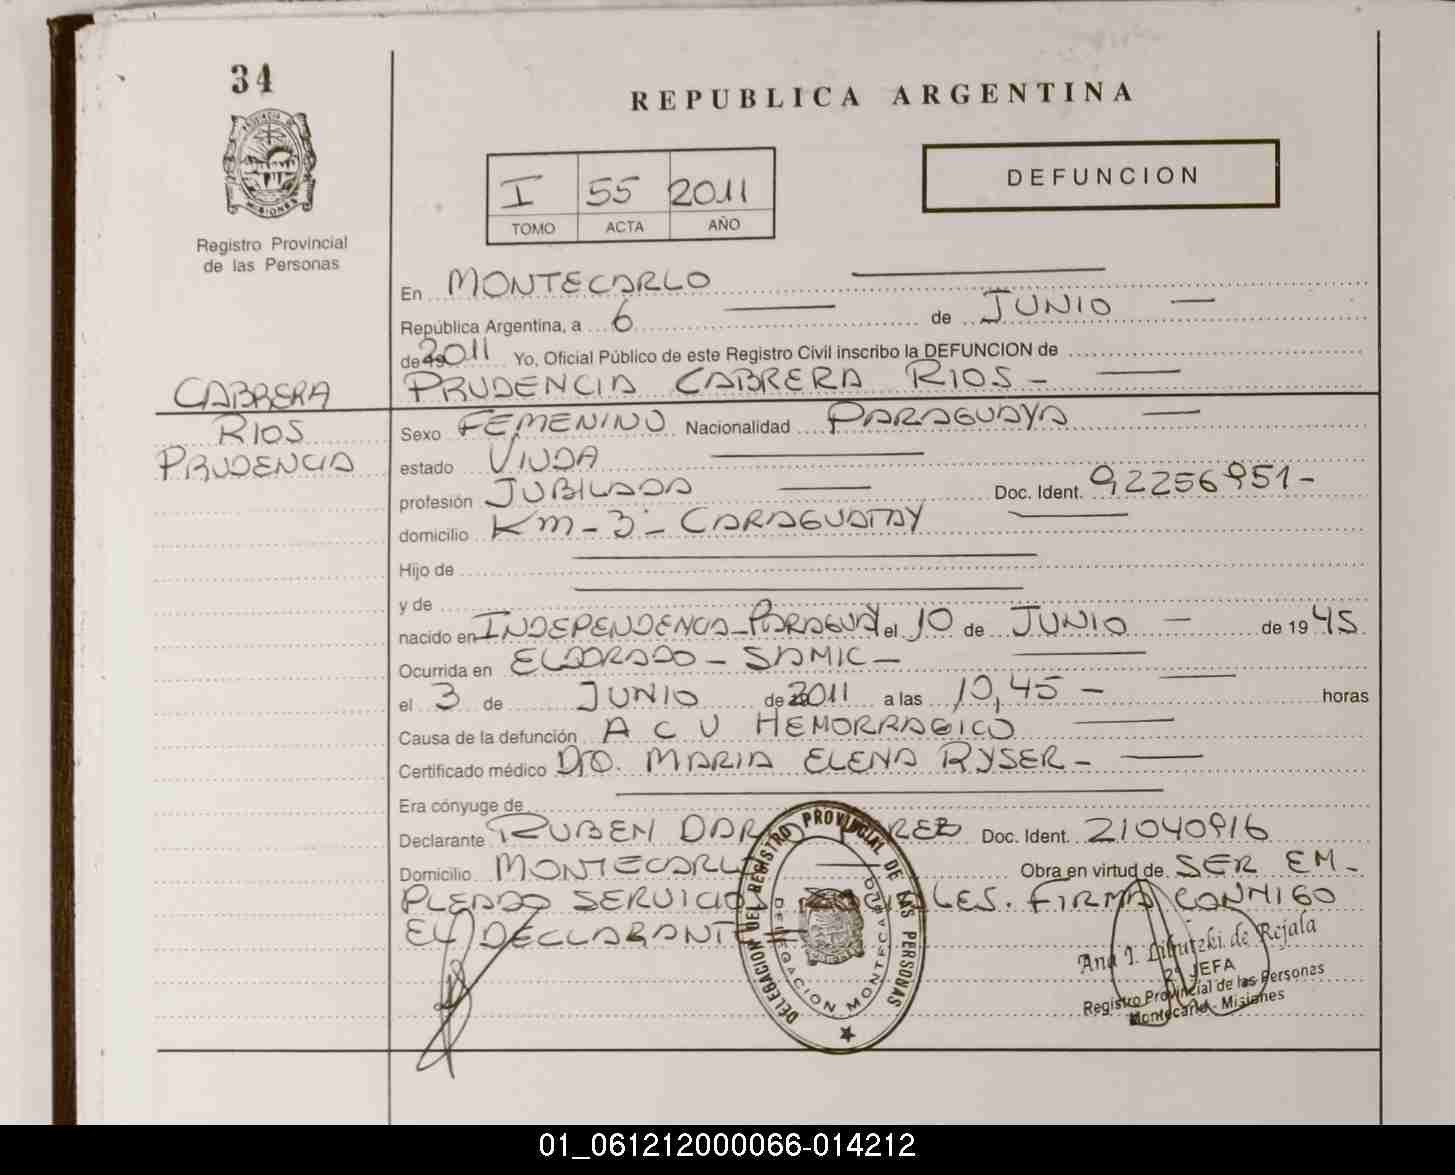 34
REPUBLICA ARGENTINA
PROVINCIA DE
MISIONES
Registro Provincial
de las Personas
I 55 2011
TOMO ACTA AÑO
DEFUNCION
En MONTECARLO
República Argentina, a 6 de JUNIO
de 2011 Yo, Oficial Público de este Registro Civil inscribo la DEFUNCION de
PRUDENCIA CABRERA RIOS -
CABRERA
RIOS
PRUDENCIA
Sexo FEMENINO Nacionalidad PARAGUAYA
estado VIUDA
profesión JUBILADA Doc. Ident. 92256951-
domicilio Km - 3 - CARAGUATAY
Hijo de
y de
nacido en INDEPENDENCIA - PARAGUAY el 10 de JUNIO de 1945
Ocurrida en ELDORADO - SAMIC -
el 3 de JUNIO de 2011 a las 10,45 - horas
Causa de la defunción A C V HEMORRAGICO
Certificado médico Dra. MARIA ELENA RYSER -
Era cónyuge de
Declarante RUBEN Doc. Ident. 21040916
Domicilio MONTECARLO Obra en virtud de SER EM-
PLEADO SERVICIOS SOCIALES. FIRMA CONMIGO
EL DECLARANTE
DELEGACION DEL REGISTRO PROVINCIAL DE LAS PERSONAS
DELEGACION MONTECARLO
Ana I. de Rejala
2º JEFA
Registro Provincial de las Personas
Montecarlo - Misiones
01_061212000066-014212